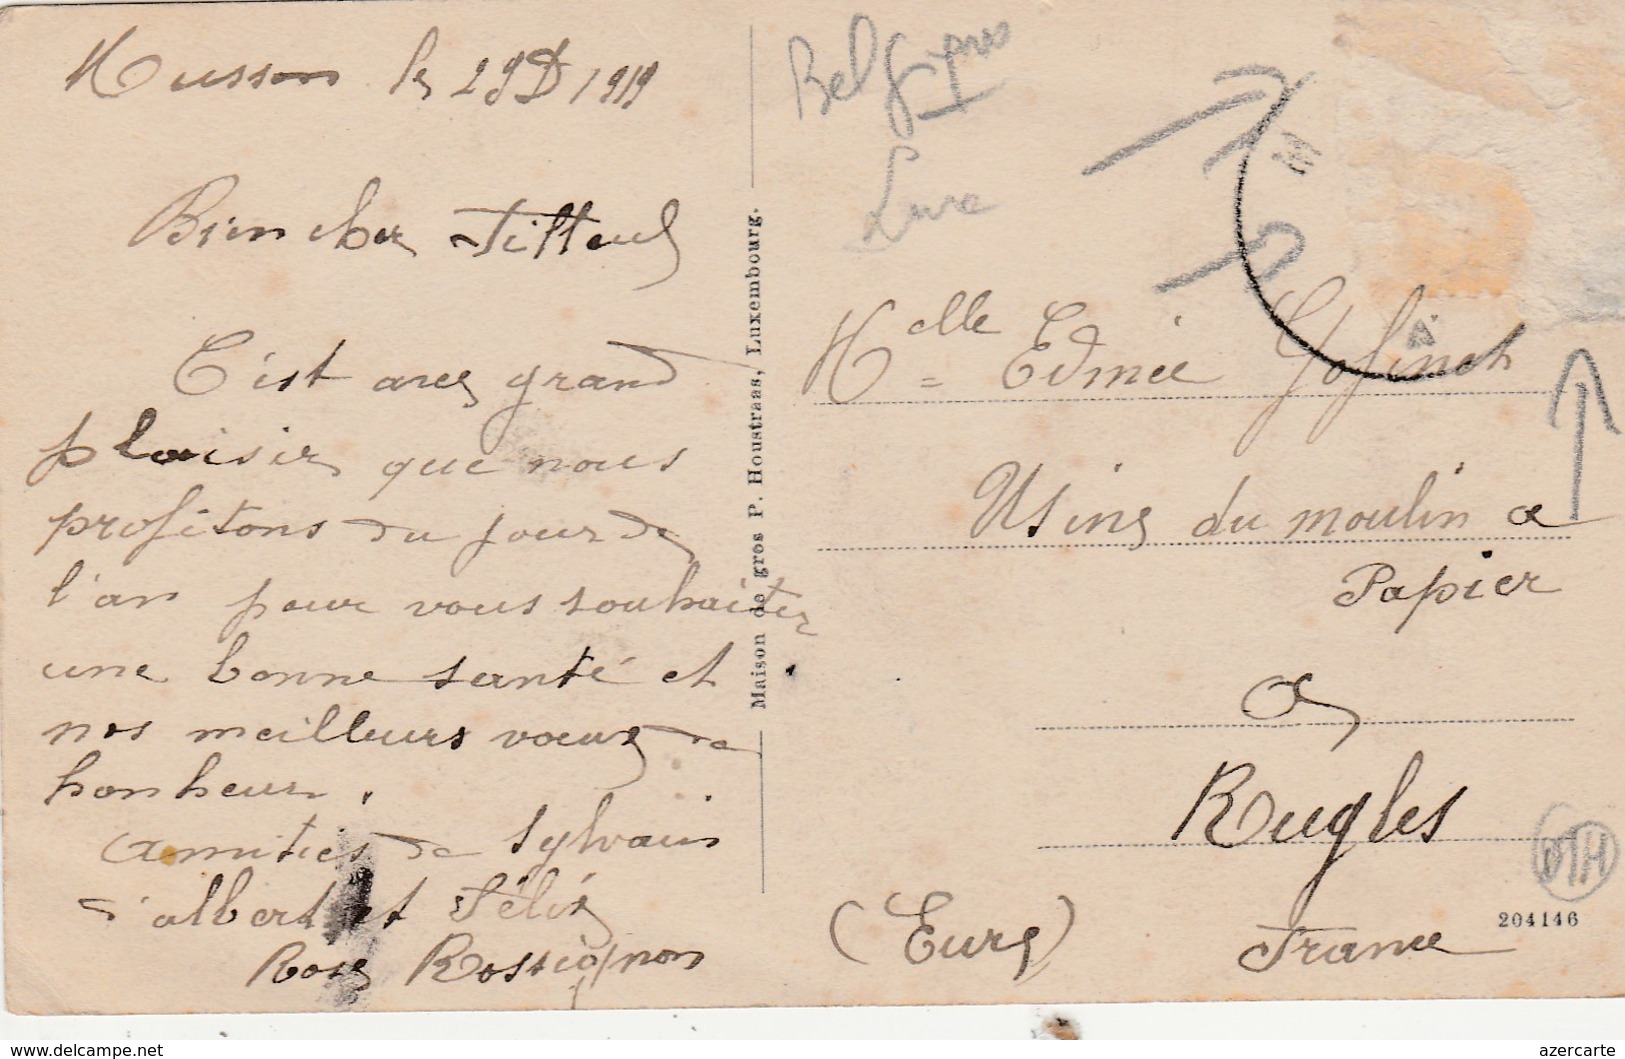 Musson le 29 D 1919
Bien cher Filleul
C'est avec grand
plaisir que nous
profitons du jour de
l'an pour vous souhaiter
une bonne santé et
nos meilleurs vœux de
bonheur.
Amitiés de Sylvain
d'albert et Félix
Rose Rossignon
Maison de gros P. Houstraas, Luxembourg.
Belg
Luxe
Melle Edmée Gofinet
Usine du moulin a
Papier
a
Rugles
(Eure) France
204146
delcampe.net
azercarte